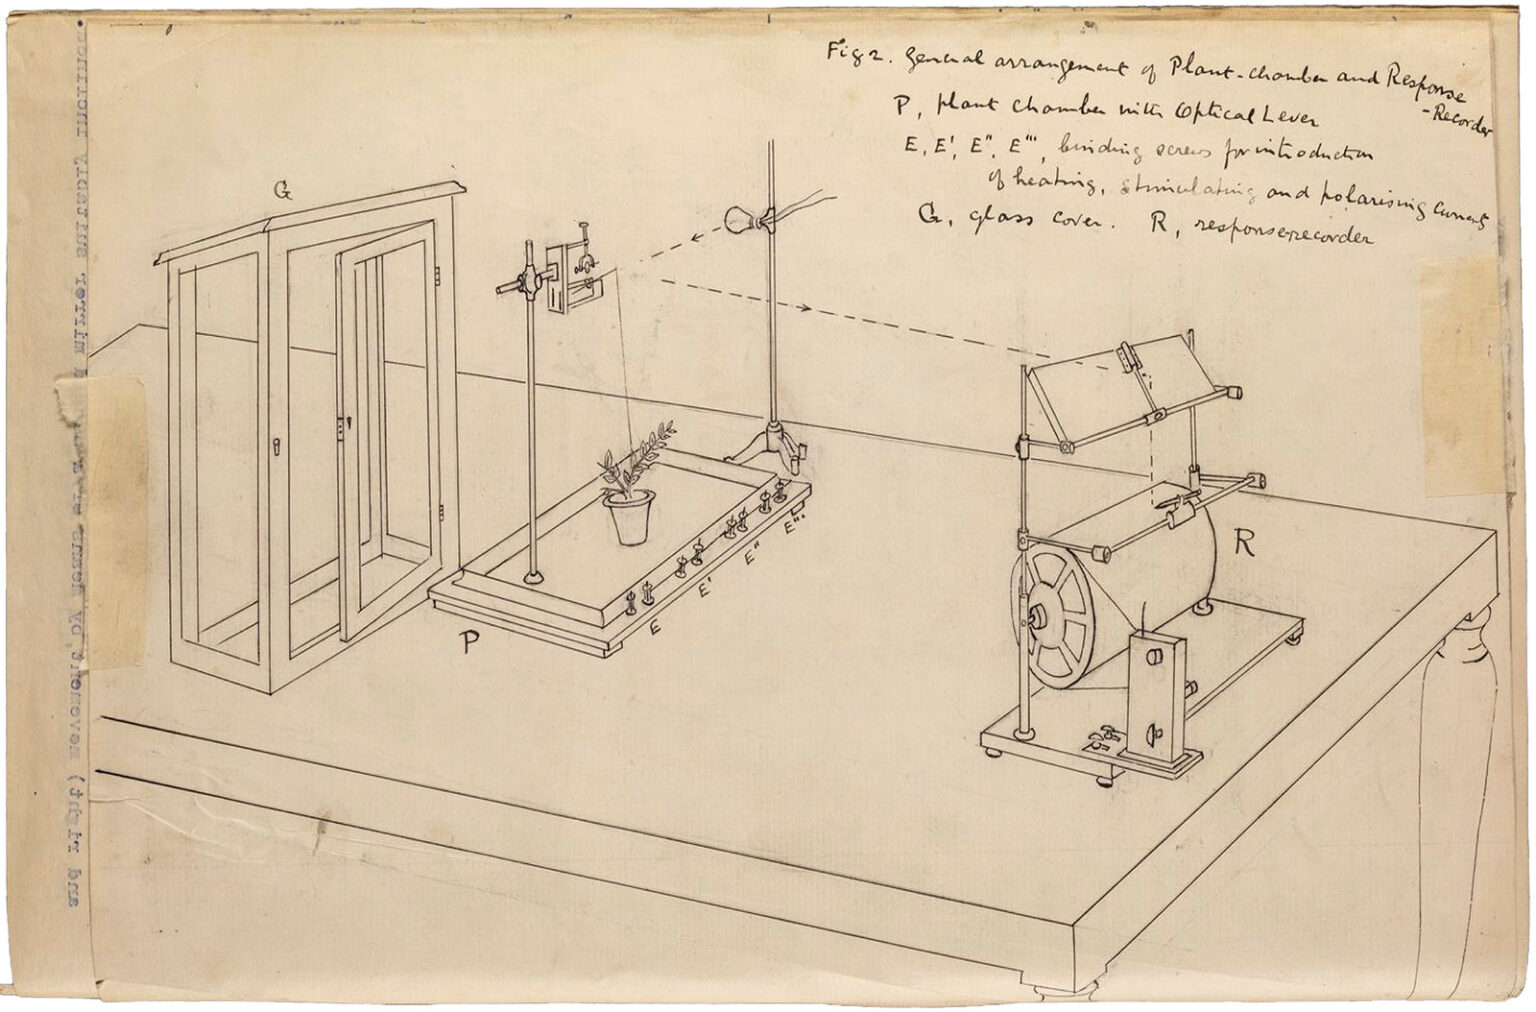 Fig 2. General arrangement of Plant-chamber and Response
-Recorder
P, plant chamber with Optical Lever
E, E', E", E"', binding screws for introduction
of heating, stimulating and polarising currents
G, glass cover. R, response recorder
G
P
E
E'
E"
E"'
R
and light) movement by means of
mirror